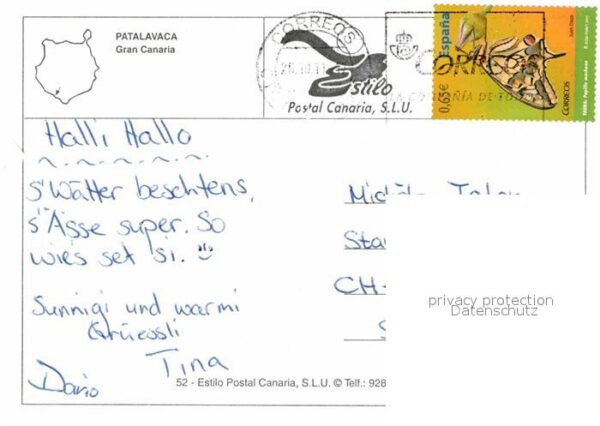 PATALAVACA
Gran Canaria
CORREOS
Estilo
Postal Canaria, S.L.U.
España
0,65€
CORREOS
Halli Hallo
s'Wätter beschtens,
s'Ässe super. So
wies set si.
Sunnigi und warmi
Grüessli
Tina
Dario
CH-
privacy protection
Datenschutz
52 - Estilo Postal Canaria, S.L.U. © Telf.: 928